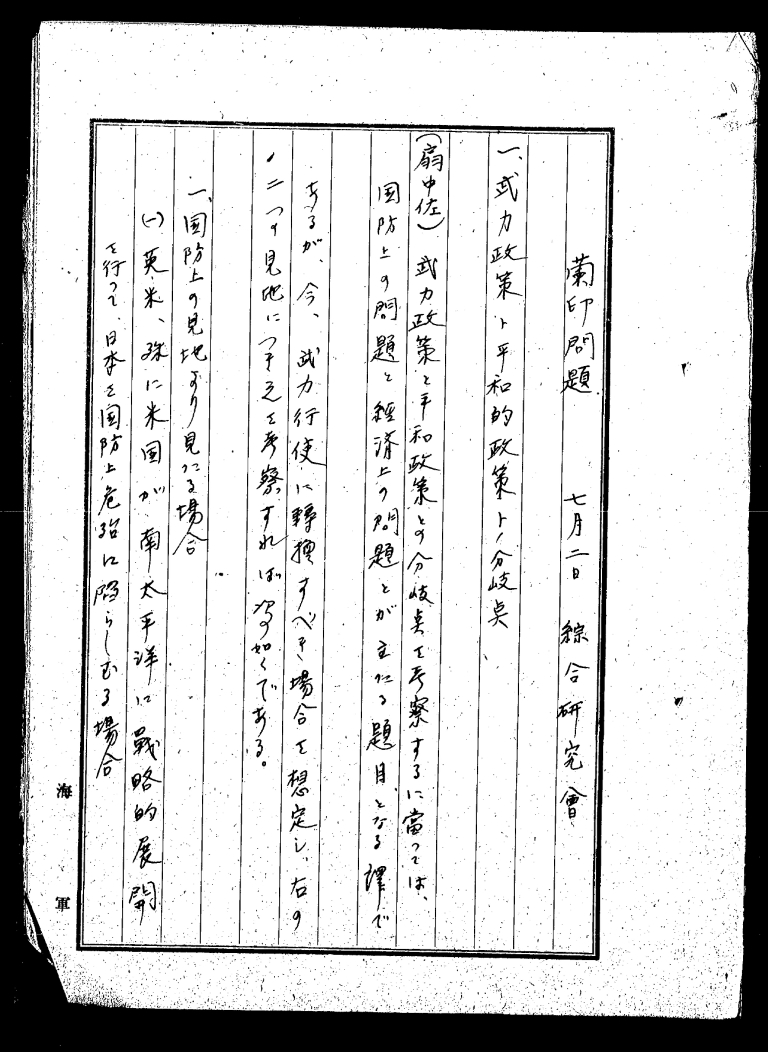 蘭印問題　七月二日　綜合研究會
一、武力政策ト平和的政策トノ分岐点
(扇中佐)　武力政策と平和政策との分岐点を考察するに當つては、
国防上の問題と経済上の問題とが主たる題目となる譯で
あるが、今、武力行使に轉換すべき場合を想定し、右の
二つの見地につき之を考察すれば次の如くである。
一、国防上の見地より見たる場合
(一)英米、殊に米国が南太平洋に戰略的展開
を行つて、日本を国防上危殆に陥らしむる場合
海軍